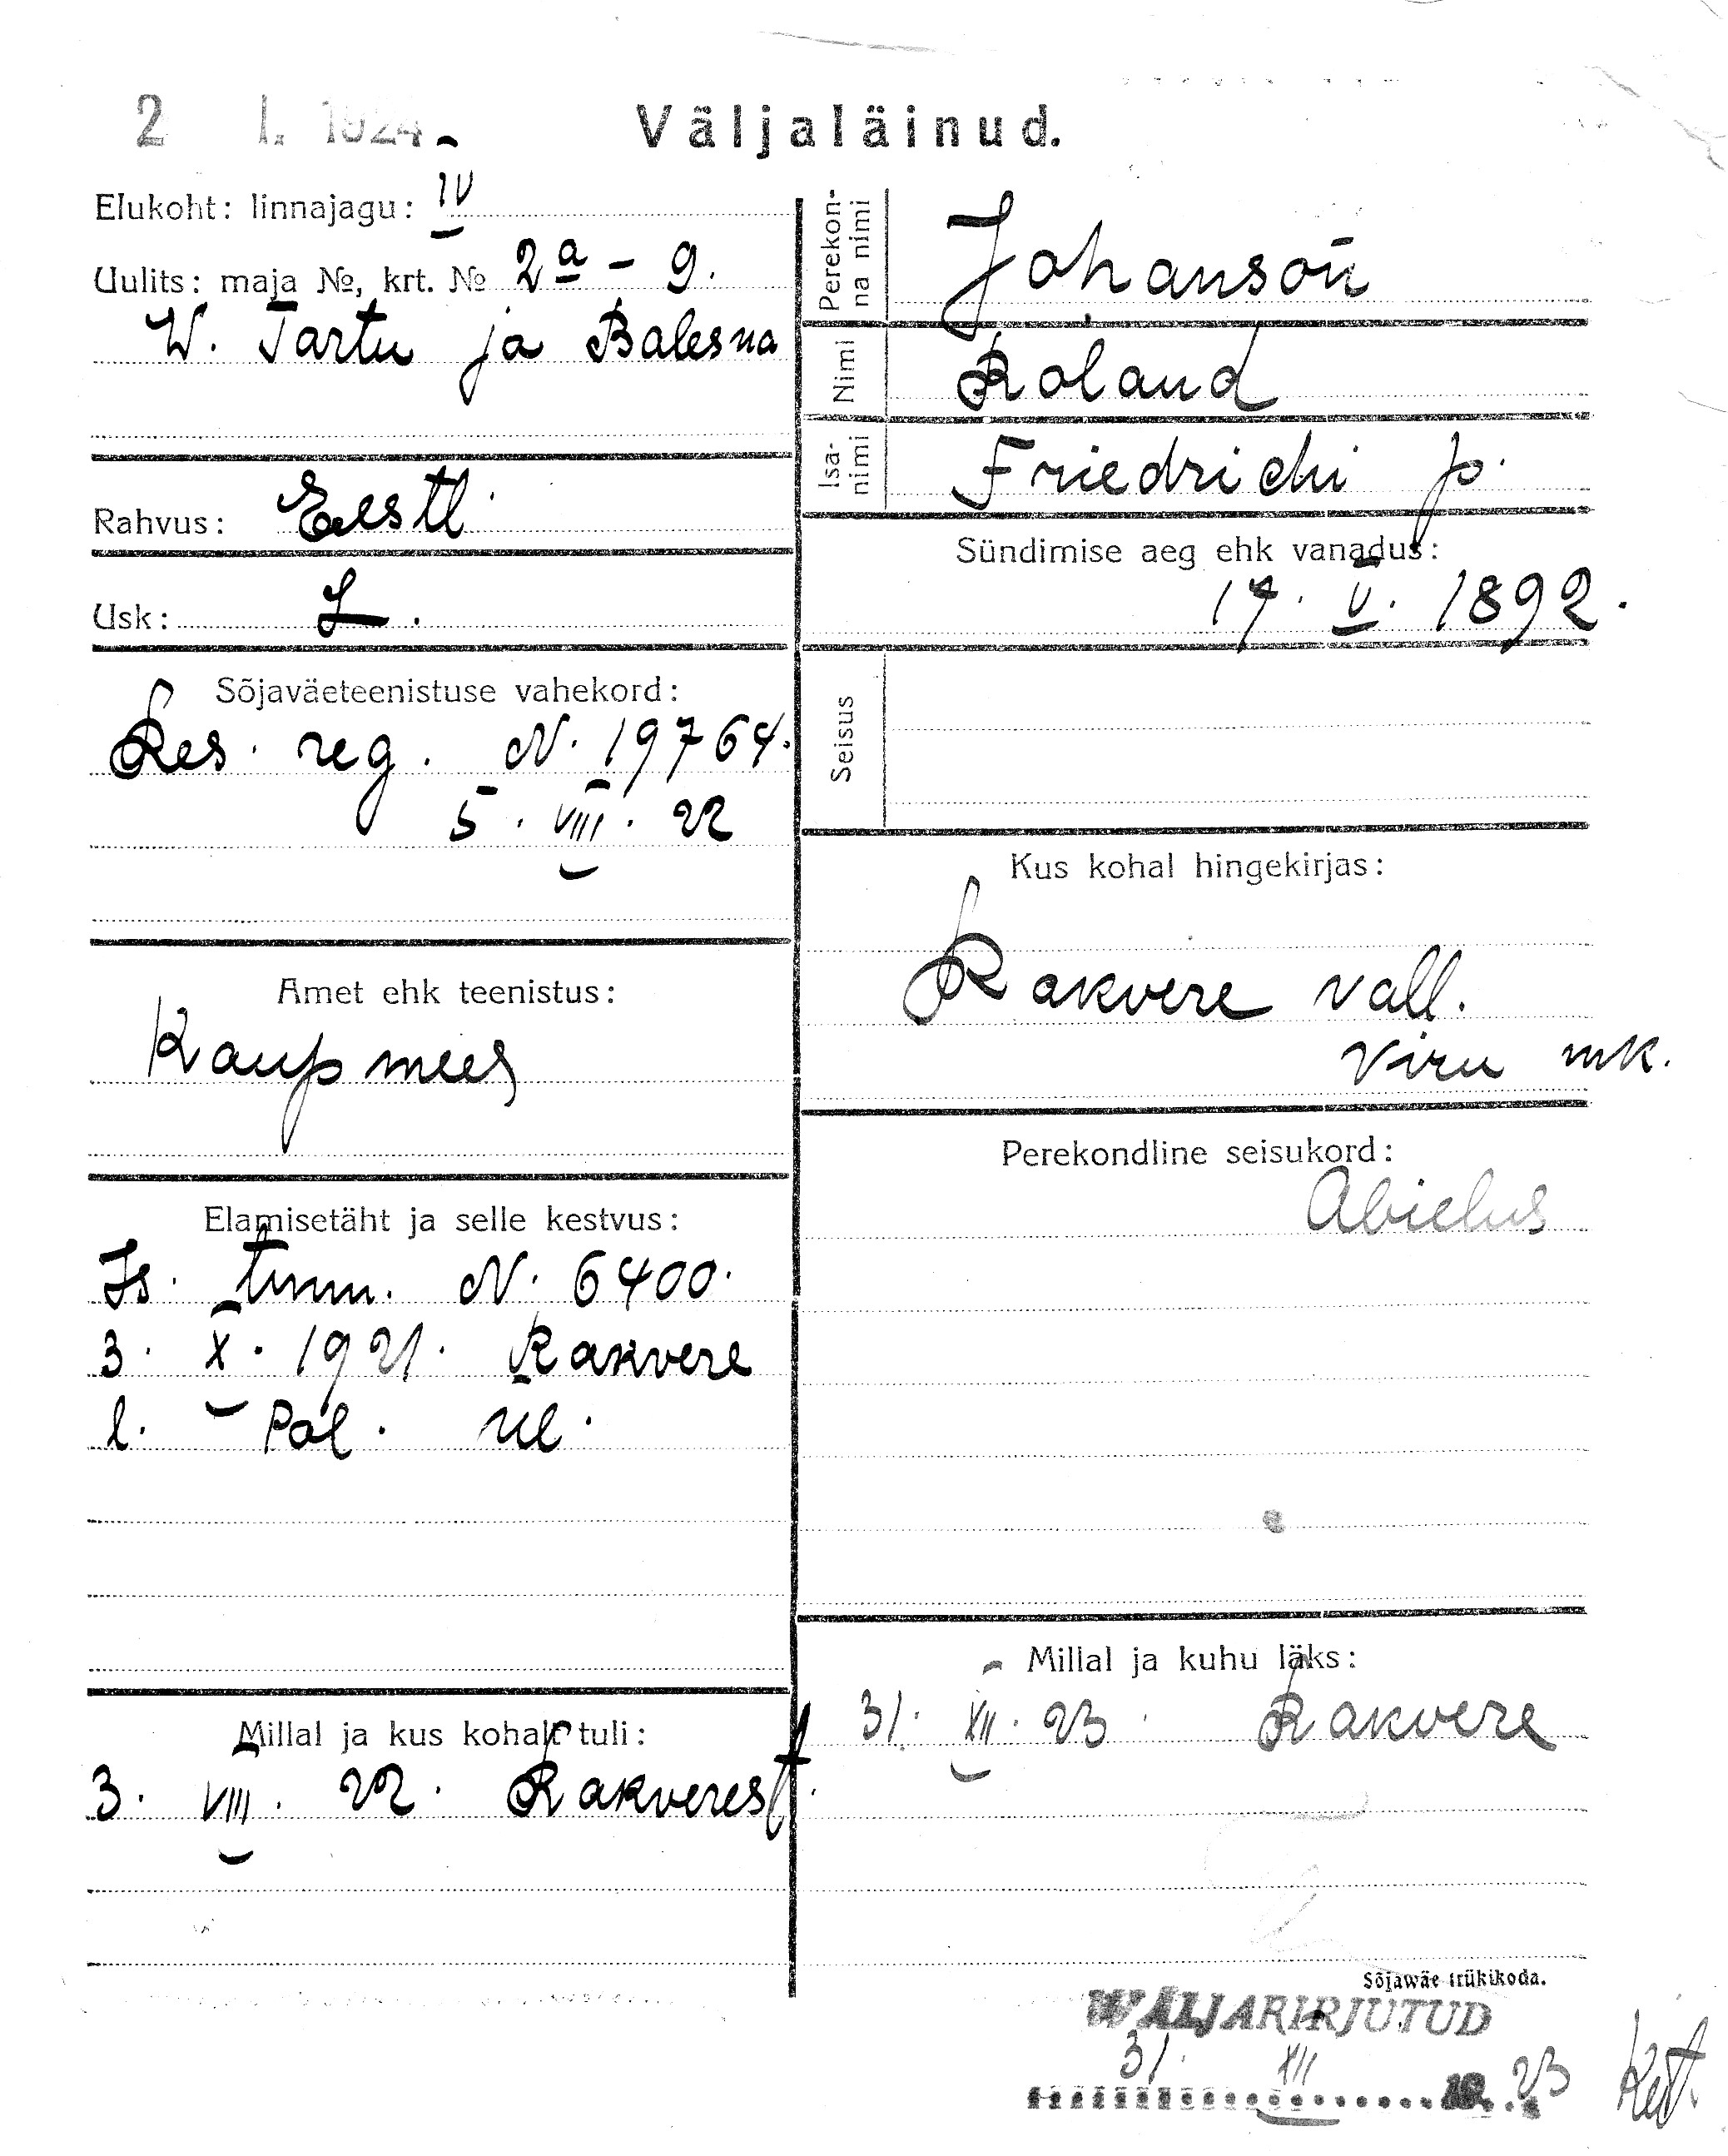 2 I. 1924
Väljaläinud.
Elukoht: linnajagu: IV
Uulits: maja №, krt. № 2a - 9.
W. Tartu ja Balesna
Rahvus: Eesti
Usk: L.
Sõjaväeteenistuse vahekord:
Res. reg. N. 19764.
5. VIII. 22
Amet ehk teenistus:
Kaupmees
Elamisetäht ja selle kestvus:
Is. tunn. N. 6400.
3. X. 1921. Rakvere
l. Pol. ül.
Millal ja kus kohalt tuli:
3. VIII. 22. Rakverest.
Perekonna nimi
Johanson
Nimi
Roland
Isanimi
Friedrichi p.
Sündimise aeg ehk vanadus:
17. V. 1892.
Seisus
Kus kohal hingekirjas:
Rakvere vall.
Viru mk.
Perekondline seisukord:
Abielus
Millal ja kuhu läks:
31. XII. 23. Rakvere
Sõjawäe trükikoda.
WÄLJAKIRJUTUD
31. XII 19 23